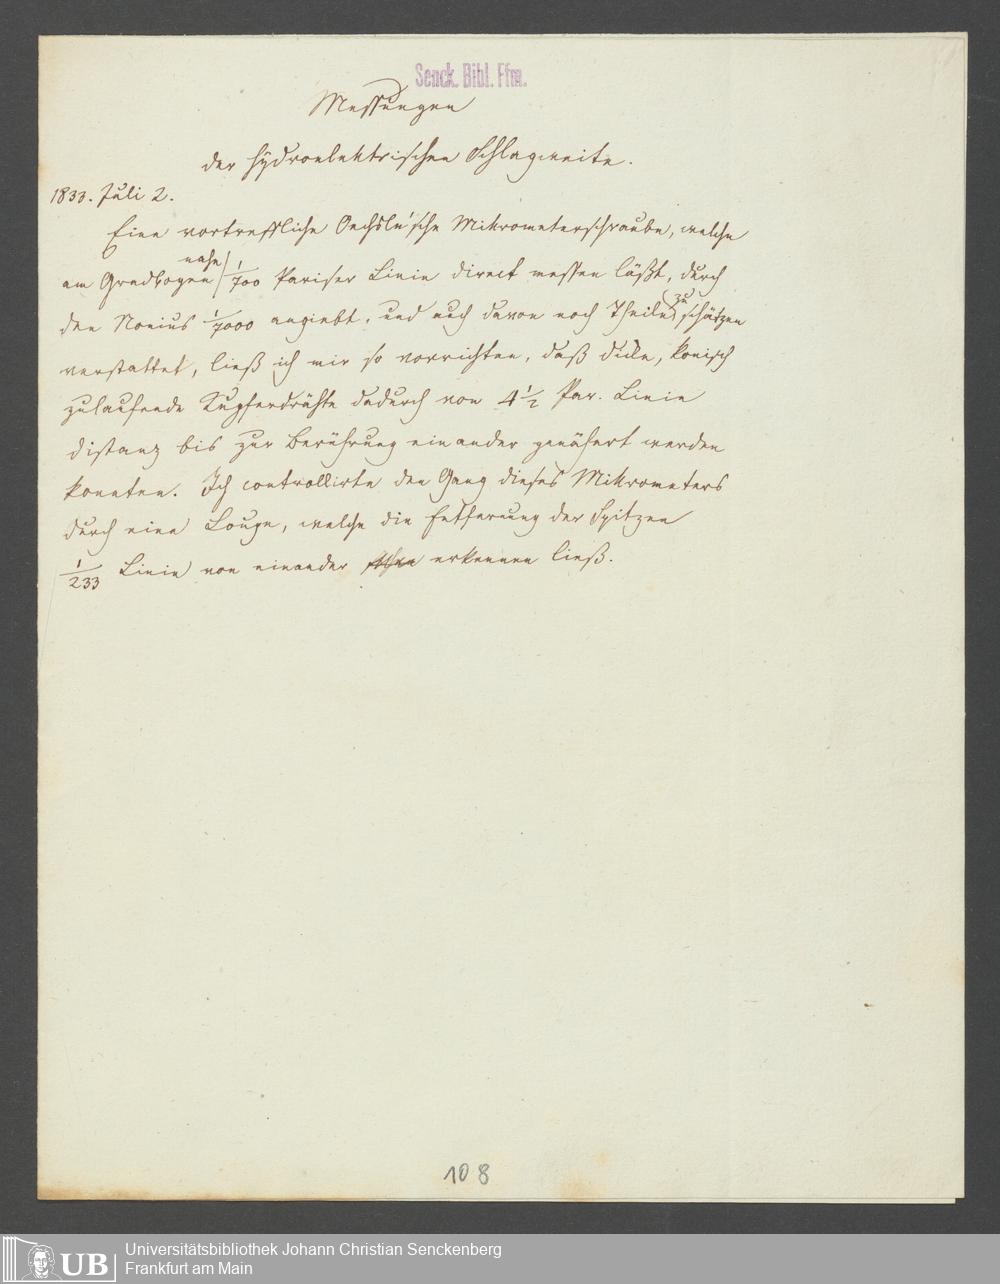 Senck. Bibl. Ffm.
Messungen
der hydroelektrischen Schlagweite.
1833. Juli 2.
Eine vortreffliche Oechsle'sche Mikrometerschraube, welche
am Gradbogen nahe 1/700 Pariser Linie direct messen läßt, durch
den Nonius 1/7000 angiebt, und auch davon noch Theile zu schätzen
verstattet, ließ ich mir so vorrichten, daß dicke, konisch
zulaufende Kupferdrähte dadurch von 4 1/2 Par. Linie
distanz bis zur Berührung einander genähert werden
konnten. Ich controllirte den Gang dieses Mikrometers
durch eine Loupe, welche die Entfernung der Spitzen
1/233 Linie von einander erkennen ließ.
108
UB
Universitätsbibliothek Johann Christian Senckenberg
Frankfurt am Main